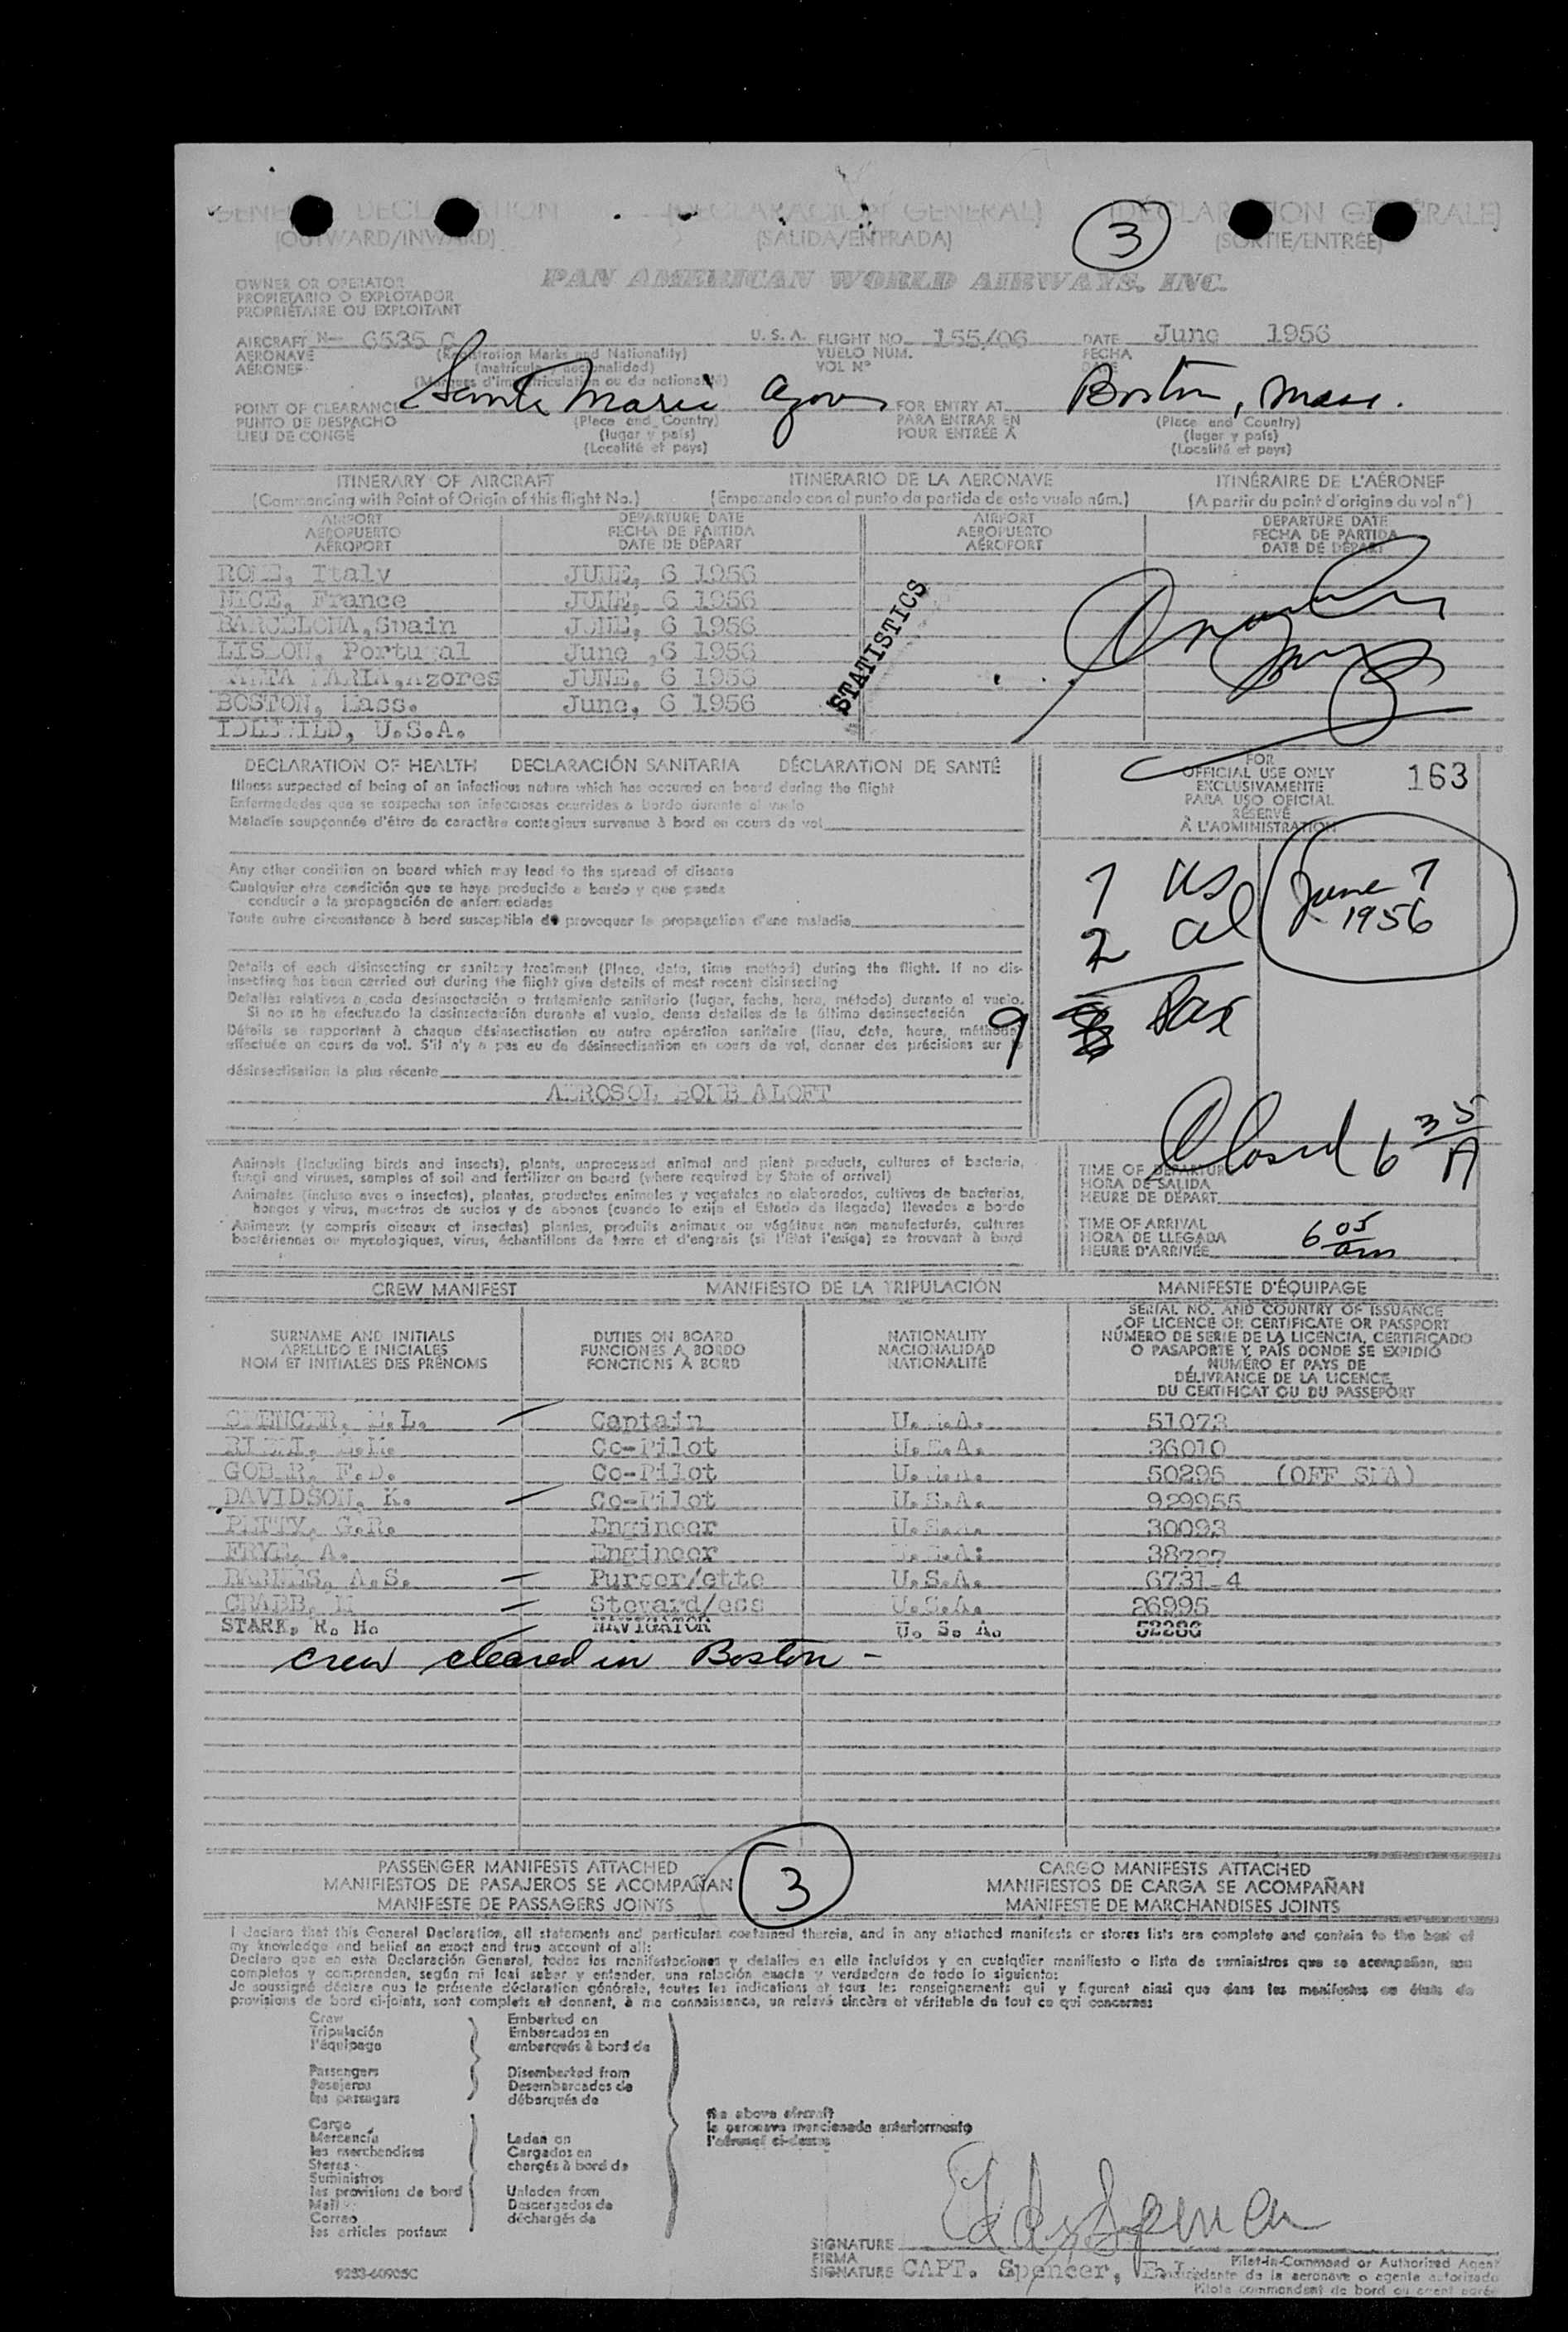 GENERAL DECLARATION (DECLARACION GENERAL) (DECLARATION GENERALE)
(OUTWARD/INWARD) (SALIDA/ENTRADA) 3 (SORTIE/ENTRÉE)
OWNER OR OPERATOR
PROPIETARIO O EXPLOTADOR
PROPRIÉTAIRE OU EXPLOITANT
PAN AMERICAN WORLD AIRWAYS, INC.
AIRCRAFT N- 6535 C U.S.A. FLIGHT NO. 155/06 DATE June 1956
AERONAVE (Registration Marks and Nationality) VUELO NUM. FECHA
AÉRONEF (matrícula y nacionalidad) VOL Nº
(Marques d'immatriculation ou de nationalité)
POINT OF CLEARANCE Santa Maria Azores FOR ENTRY AT Boston, Mass.
PUNTO DE DESPACHO (Place and Country) PARA ENTRAR EN (Place and Country)
LIEU DE CONGÉ (lugar y país) POUR ENTRÉE À (lugar y país)
(Localité et pays) (Localité et pays)
ITINERARY OF AIRCRAFT ITINERARIO DE LA AERONAVE ITINÉRAIRE DE L'AÉRONEF
(Commencing with Point of Origin of this flight No.) (Empezando con el punto de partida de este vuelo núm.) (A partir du point d'origine du vol nº)
AIRPORT DEPARTURE DATE AIRPORT DEPARTURE DATE
AEROPUERTO FECHA DE PARTIDA AEROPUERTO FECHA DE PARTIDA
AÉROPORT DATE DE DÉPART AÉROPORT DATE DE DÉPART
ROME, Italy JUNE, 6 1956
NICE, France JUNE, 6 1956
BARCELONA, Spain JUNE, 6 1956
LISBON, Portugal June ,6 1956
SANTA MARIA, Azores JUNE, 6 1956
BOSTON, Mass. June, 6 1956
IDLEWILD, U.S.A.
STATISTICS
DECLARATION OF HEALTH DECLARACIÓN SANITARIA DÉCLARATION DE SANTÉ
Illness suspected of being of an infectious nature which has occured on board during the flight
Enfermedades que se sospecha son infecciosas ocurridas a bordo durante el vuelo
Maladie soupçonnée d'être de caractère contagieux survenue à bord en cours de vol
FOR
OFFICIAL USE ONLY 163
EXCLUSIVAMENTE
PARA USO OFICIAL
RÉSERVÉ
À L'ADMINISTRATION
Any other condition on board which may lead to the spread of disease
Cualquier otra condición que se haya producido a bordo y que pueda
conducir a la propagación de enfermedades
Toute autre circonstance à bord susceptible de provoquer la propagation d'une maladie
7 US
2 al
9 Pax
June 7
1956
Details of each disinsecting or sanitary treatment (Place, date, time method) during the flight. If no dis-
insecting has been carried out during the flight give details of most recent disinsecting
Detalles relativos a cada desinsectación o tratamiento sanitario (lugar, fecha, hora, método) durante el vuelo.
Si no se ha efectuado la desinsectación durante el vuelo, dense detalles de la última desinsectación
Détails se rapportant à chaque désinsectisation ou autre opération sanitaire (lieu, date, heure, méthode)
effectuée en cours de vol. S'il n'y a pas eu de désinsectisation en cours de vol, donner des précisions sur la
désinsectisation la plus récente
AEROSOL BOMB ALOFT
Closed 6 35 A
Animals (including birds and insects), plants, unprocessed animal and plant products, cultures of bacteria,
fungi and viruses, samples of soil and fertilizer on board (where required by State of arrival)
Animales (incluso aves e insectos), plantas, productos animales y vegetales no elaborados, cultivos de bacterias,
hongos y virus, muestras de suelos y de abonos (cuando lo exija el Estado de llegada) llevados a bordo
Animaux (y compris oiseaux et insectes) plantes, produits animaux ou végétaux non manufacturés, cultures
bactériennes ou mycologiques, virus, échantillons de terre et d'engrais (si l'État l'exige) se trouvant à bord
TIME OF DEPARTURE
HORA DE SALIDA
HEURE DE DÉPART
TIME OF ARRIVAL
HORA DE LLEGADA 6 05 am
HEURE D'ARRIVÉE
CREW MANIFEST MANIFIESTO DE LA TRIPULACIÓN MANIFESTE D'ÉQUIPAGE
SURNAME AND INITIALS DUTIES ON BOARD NATIONALITY
APELLIDO E INICIALES FUNCIONES A BORDO NACIONALIDAD
NOM ET INITIALES DES PRÉNOMS FONCTIONS À BORD NATIONALITÉ
SERIAL NO. AND COUNTRY OF ISSUANCE
OF LICENCE OR CERTIFICATE OR PASSPORT
NÚMERO DE SERIE DE LA LICENCIA, CERTIFICADO
O PASAPORTE Y PAÍS DONDE SE EXPIDIÓ
NUMÉRO ET PAYS DE
DÉLIVRANCE DE LA LICENCE
DU CERTIFICAT OU DU PASSEPORT
SPENCER, E.L. Captain U.S.A. 51073
Co-Pilot U.S.A. 36010
GOBER, F.D. Co-Pilot U.S.A. 50295 (OFF SMA)
DAVIDSON, K. Co-Pilot U.S.A. 929955
PETTY, G.R. Engineer U.S.A. 30093
FRYE, A. Engineer U.S.A. 38727
BARNES, A.S. Purser/ette U.S.A. 6731-4
CRABB, M Steward/ess U.S.A. 26995
STARK, R. H. NAVIGATOR U. S. A. 52286
crew cleared in Boston -
PASSENGER MANIFESTS ATTACHED CARGO MANIFESTS ATTACHED
MANIFIESTOS DE PASAJEROS SE ACOMPAÑAN 3 MANIFIESTOS DE CARGA SE ACOMPAÑAN
MANIFESTE DE PASSAGERS JOINTS MANIFESTE DE MARCHANDISES JOINTS
I declare that this General Declaration, all statements and particulars contained therein, and in any attached manifests or stores lists are complete and contain to the best of
my knowledge and belief an exact and true account of all:
Declaro que en esta Declaración General, todos las manifestaciones y detalles en ella incluídos y en cualquier manifiesto o lista de suministros que se acompañen, son
completos y comprenden, según mi leal saber y entender, una relación exacta y verdadera de todo lo siguiente:
Je soussigné déclare que la présente déclaration générale, toutes les indications et tous les renseignements qui y figurent ainsi que dans les manifestes ou états de
provisions de bord ci-joints, sont complets et donnent, à ma connaissance, un relevé sincère et véritable de tout ce qui concerne:
Crew Embarked on
Tripulación Embarcados en
l'équipage embarqués à bord de
Passengers Disembarked from
Pasajeros Desembarcados de
les passagers débarqués de
the above aircraft
la aeronave mencionada anteriormente
l'aéronef ci-dessus
Cargo
Mercancía Laden on
les marchandises Cargados en
Stores chargés à bord de
Suministros
les provisions de bord Unladen from
Mail Descargados de
Correo déchargés de
les articles postaux
SIGNATURE
FIRMA Pilot-in-Command or Authorized Agent
SIGNATURE CAPT. Spencer, E.L. Comandante de la aeronave o agente autorizado
9253-60905C Pilote commandant de bord ou agent agréé